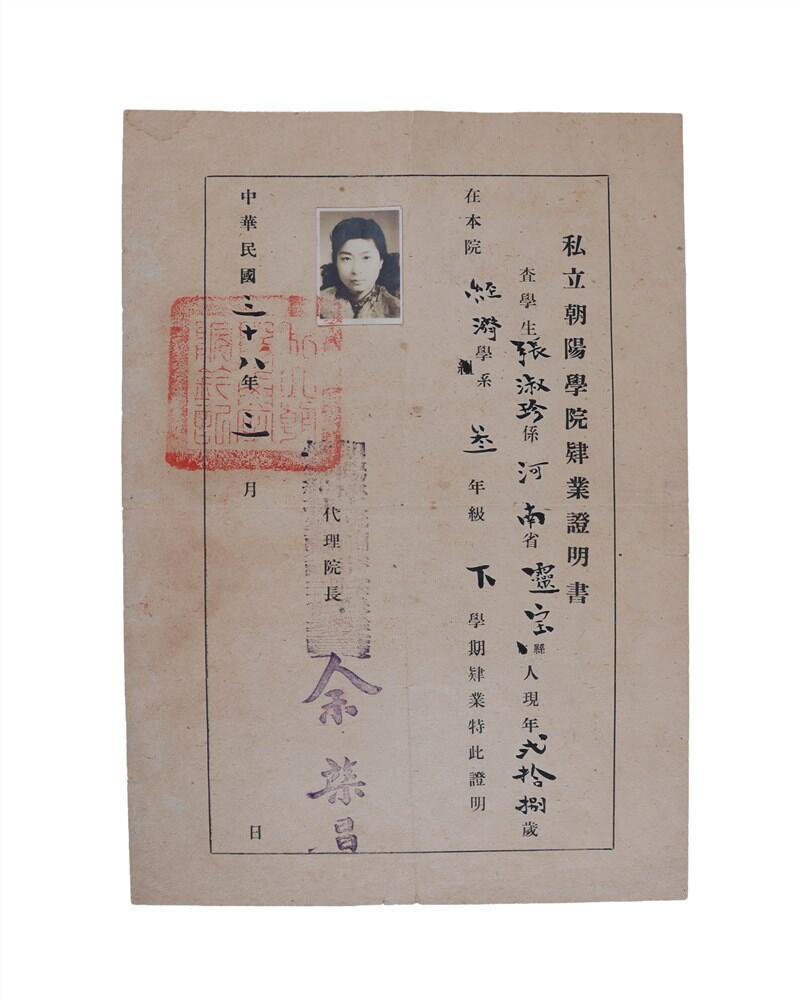 私立朝陽學院肄業證明書
查學生張淑珍係河南省靈宝縣人現年弍拾捌歲
在本院經濟學系叁年級下學期肄業特此證明
代理院長余棨昌
中華民國三十八年三月 日